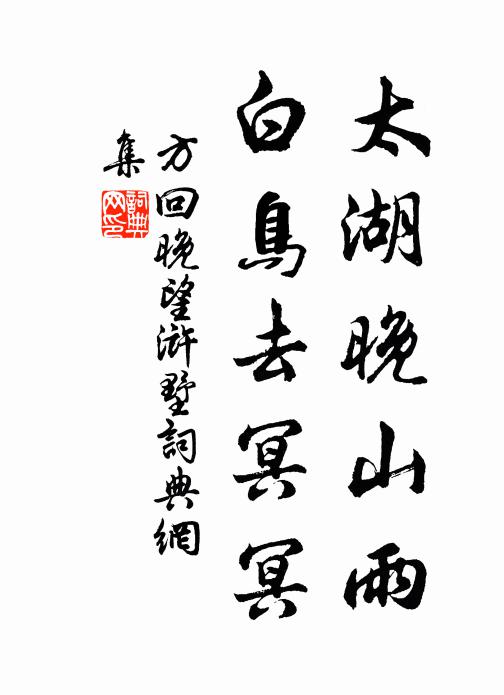 太湖晚山雨
白鳥去冥冥
方回晚望滸墅詞典網
集
詞典網印